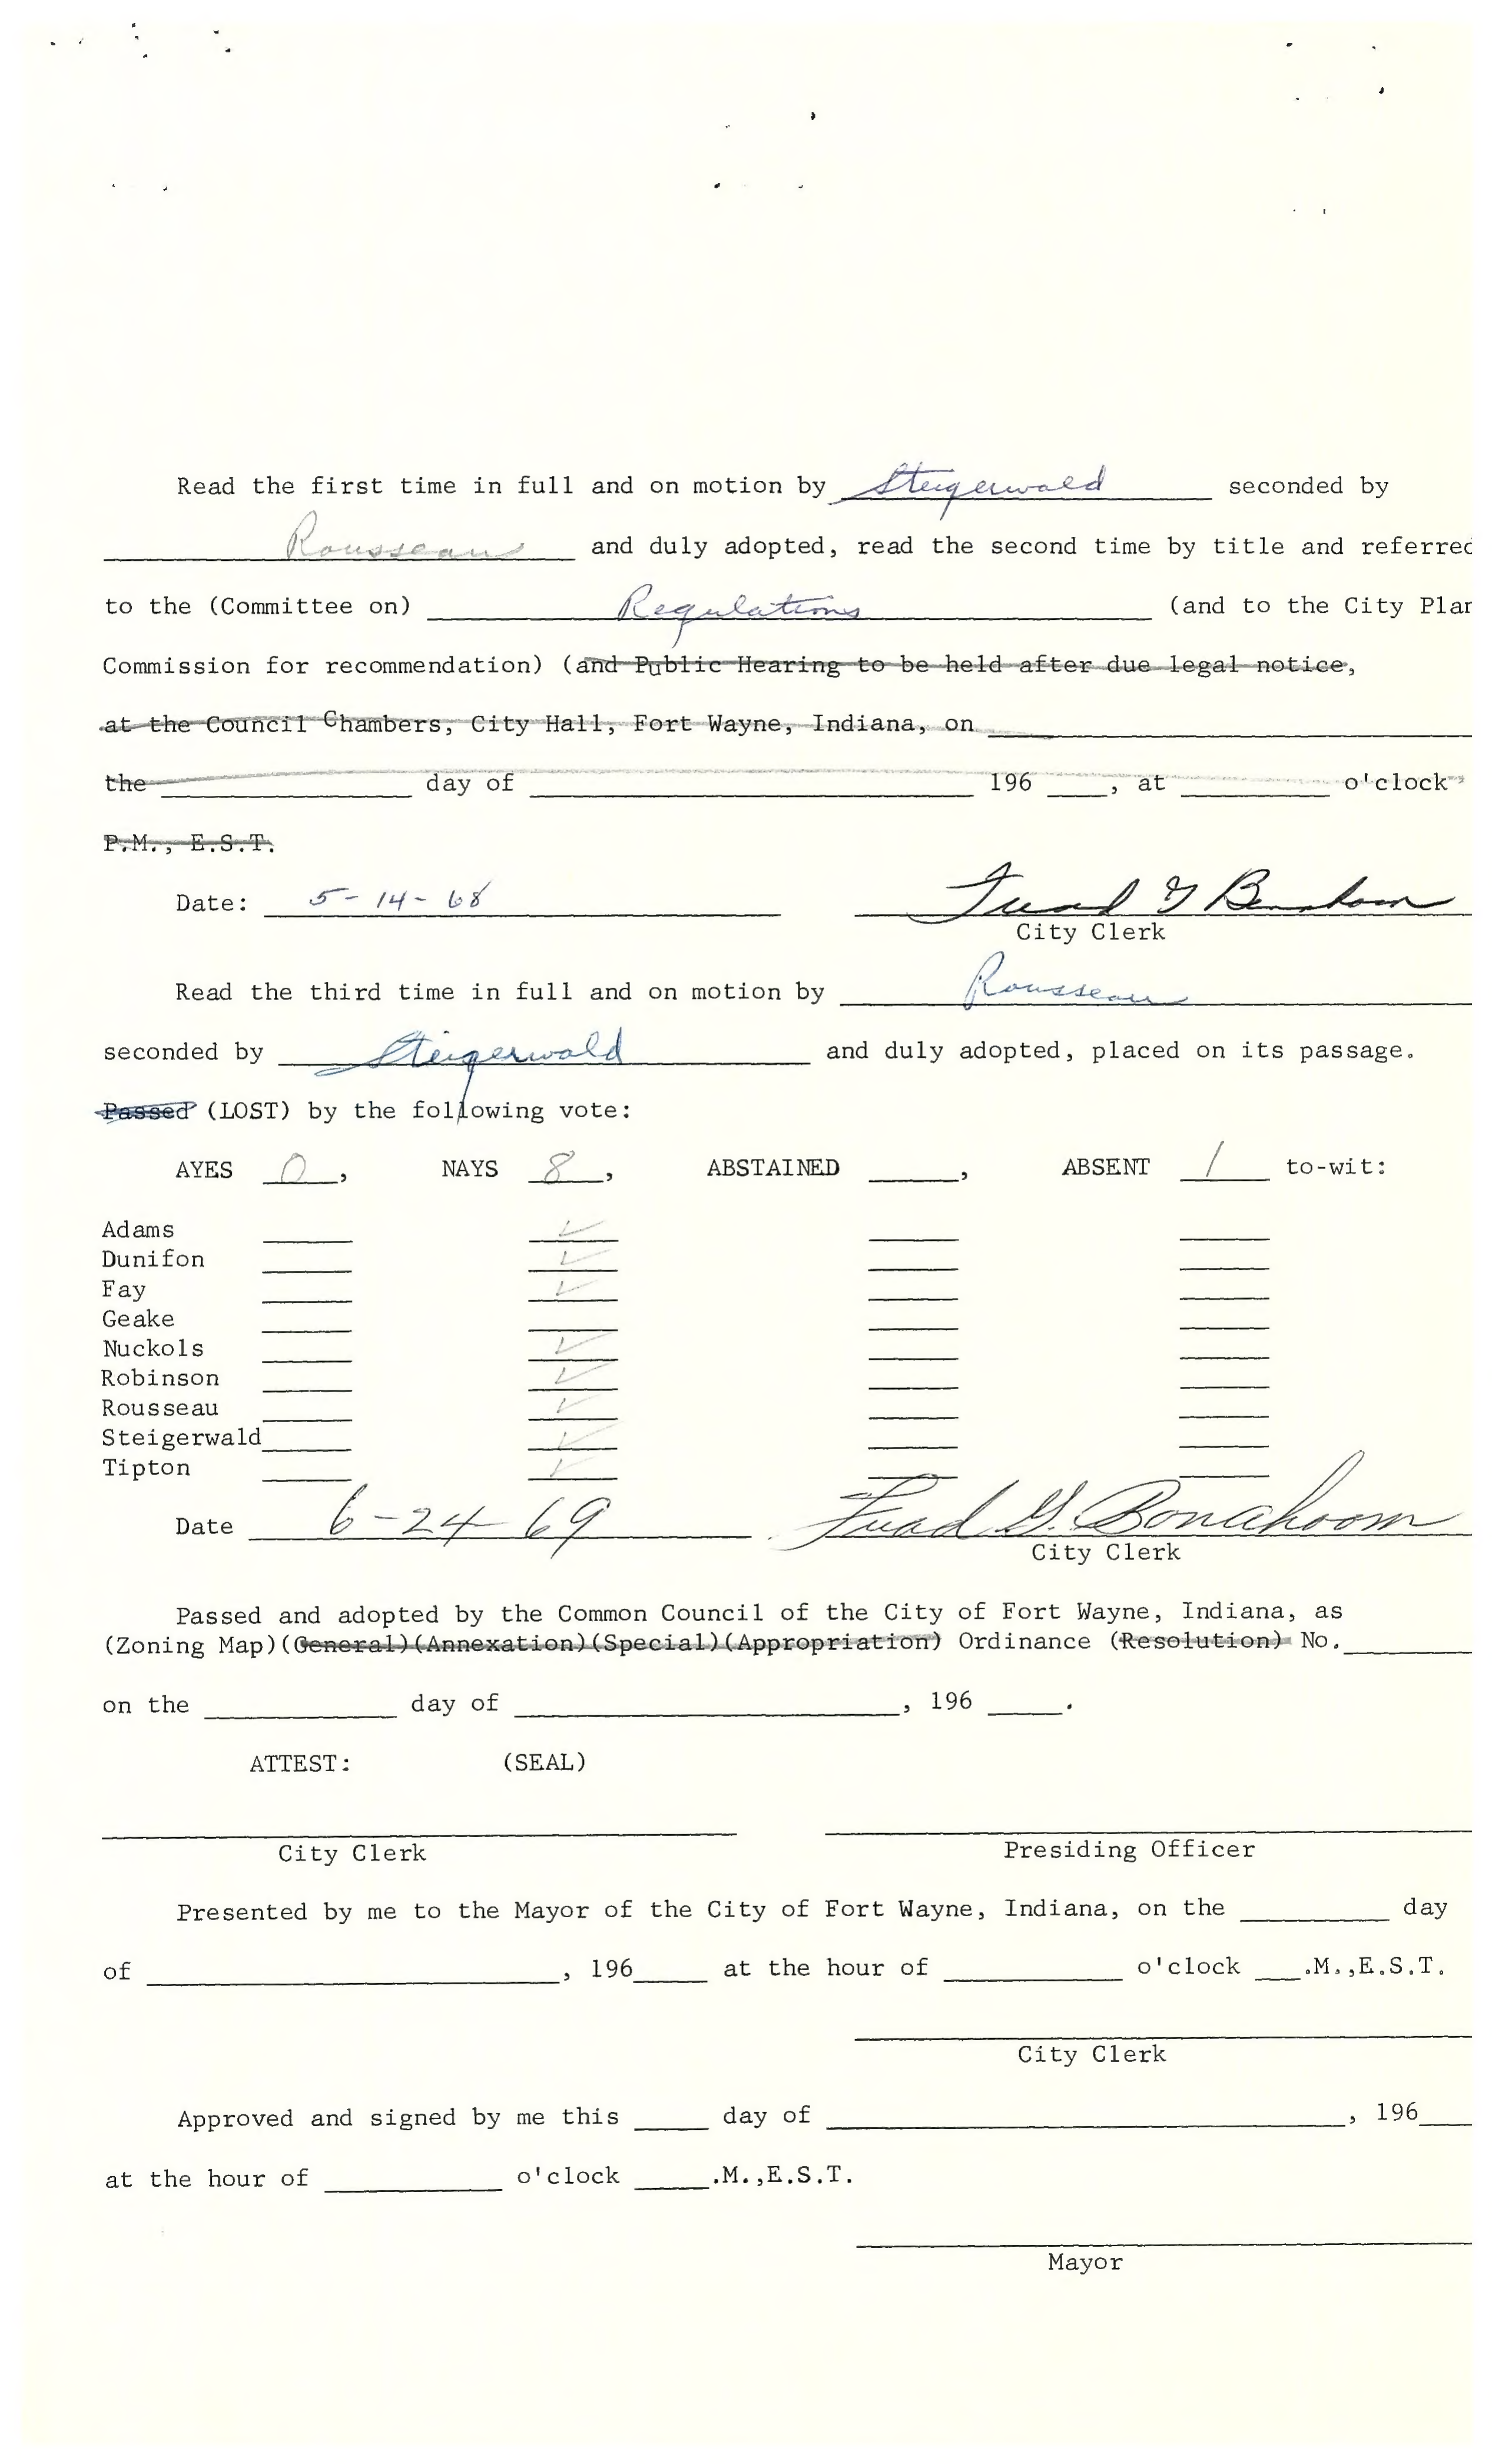 Read the first time in full and on motion by Steigerwald seconded by
Rousseau and duly adopted, read the second time by title and referred
to the (Committee on) Regulations (and to the City Plan
Commission for recommendation) (and Public Hearing to be held after due legal notice,
at the Council Chambers, City Hall, Fort Wayne, Indiana, on
the day of 196 , at o'clock
P.M., E.S.T.
Date: 5-14-68 Fuad G Bonahoom
City Clerk
Read the third time in full and on motion by Rousseau
seconded by Steigerwald and duly adopted, placed on its passage.
Passed (LOST) by the following vote:
AYES 0, NAYS 8, ABSTAINED , ABSENT 1 to-wit:
Adams ✓
Dunifon ✓
Fay ✓
Geake
Nuckols ✓
Robinson ✓
Rousseau ✓
Steigerwald ✓
Tipton ✓
Date 6-24-69 Fuad G. Bonahoom
City Clerk
Passed and adopted by the Common Council of the City of Fort Wayne, Indiana, as
(Zoning Map)(General)(Annexation)(Special)(Appropriation) Ordinance (Resolution) No.
on the day of , 196 .
ATTEST: (SEAL)
City Clerk Presiding Officer
Presented by me to the Mayor of the City of Fort Wayne, Indiana, on the day
of , 196 at the hour of o'clock .M.,E.S.T.
City Clerk
Approved and signed by me this day of , 196
at the hour of o'clock .M.,E.S.T.
Mayor